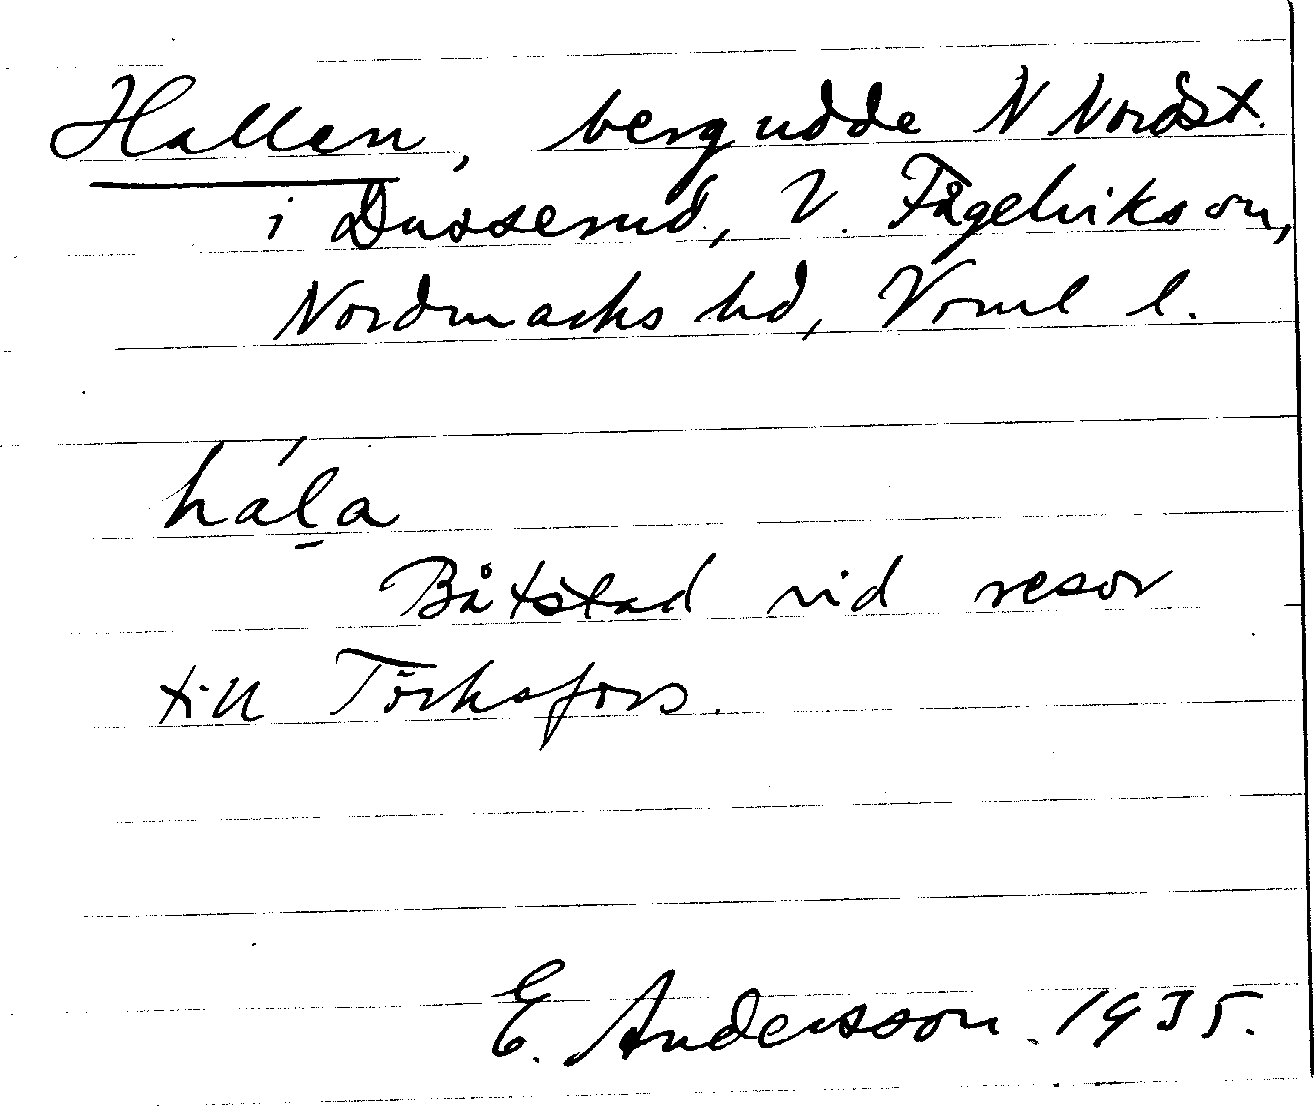 Hallen, bergudde N Nordst.
i Dusserud, V. Fågelvikson,
Nordmarks hd, Vrml l.
hál̠a
Båtstad vid resor
till Törksfors.
E. Andersson. 1935.